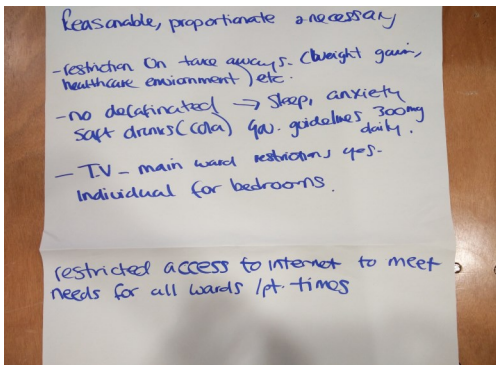 Reasonable, proportionate & necessary
- restriction on take aways. (Weight gain,
healthcare environment) etc.
- no decafinated → Sleep, anxiety
Soft drinks (cola) Gov. guidelines 300mg
daily.
- T.V - main ward restrictions yes.
Individual for bedrooms.
restricted access to internet to meet
needs for all wards /pt. times